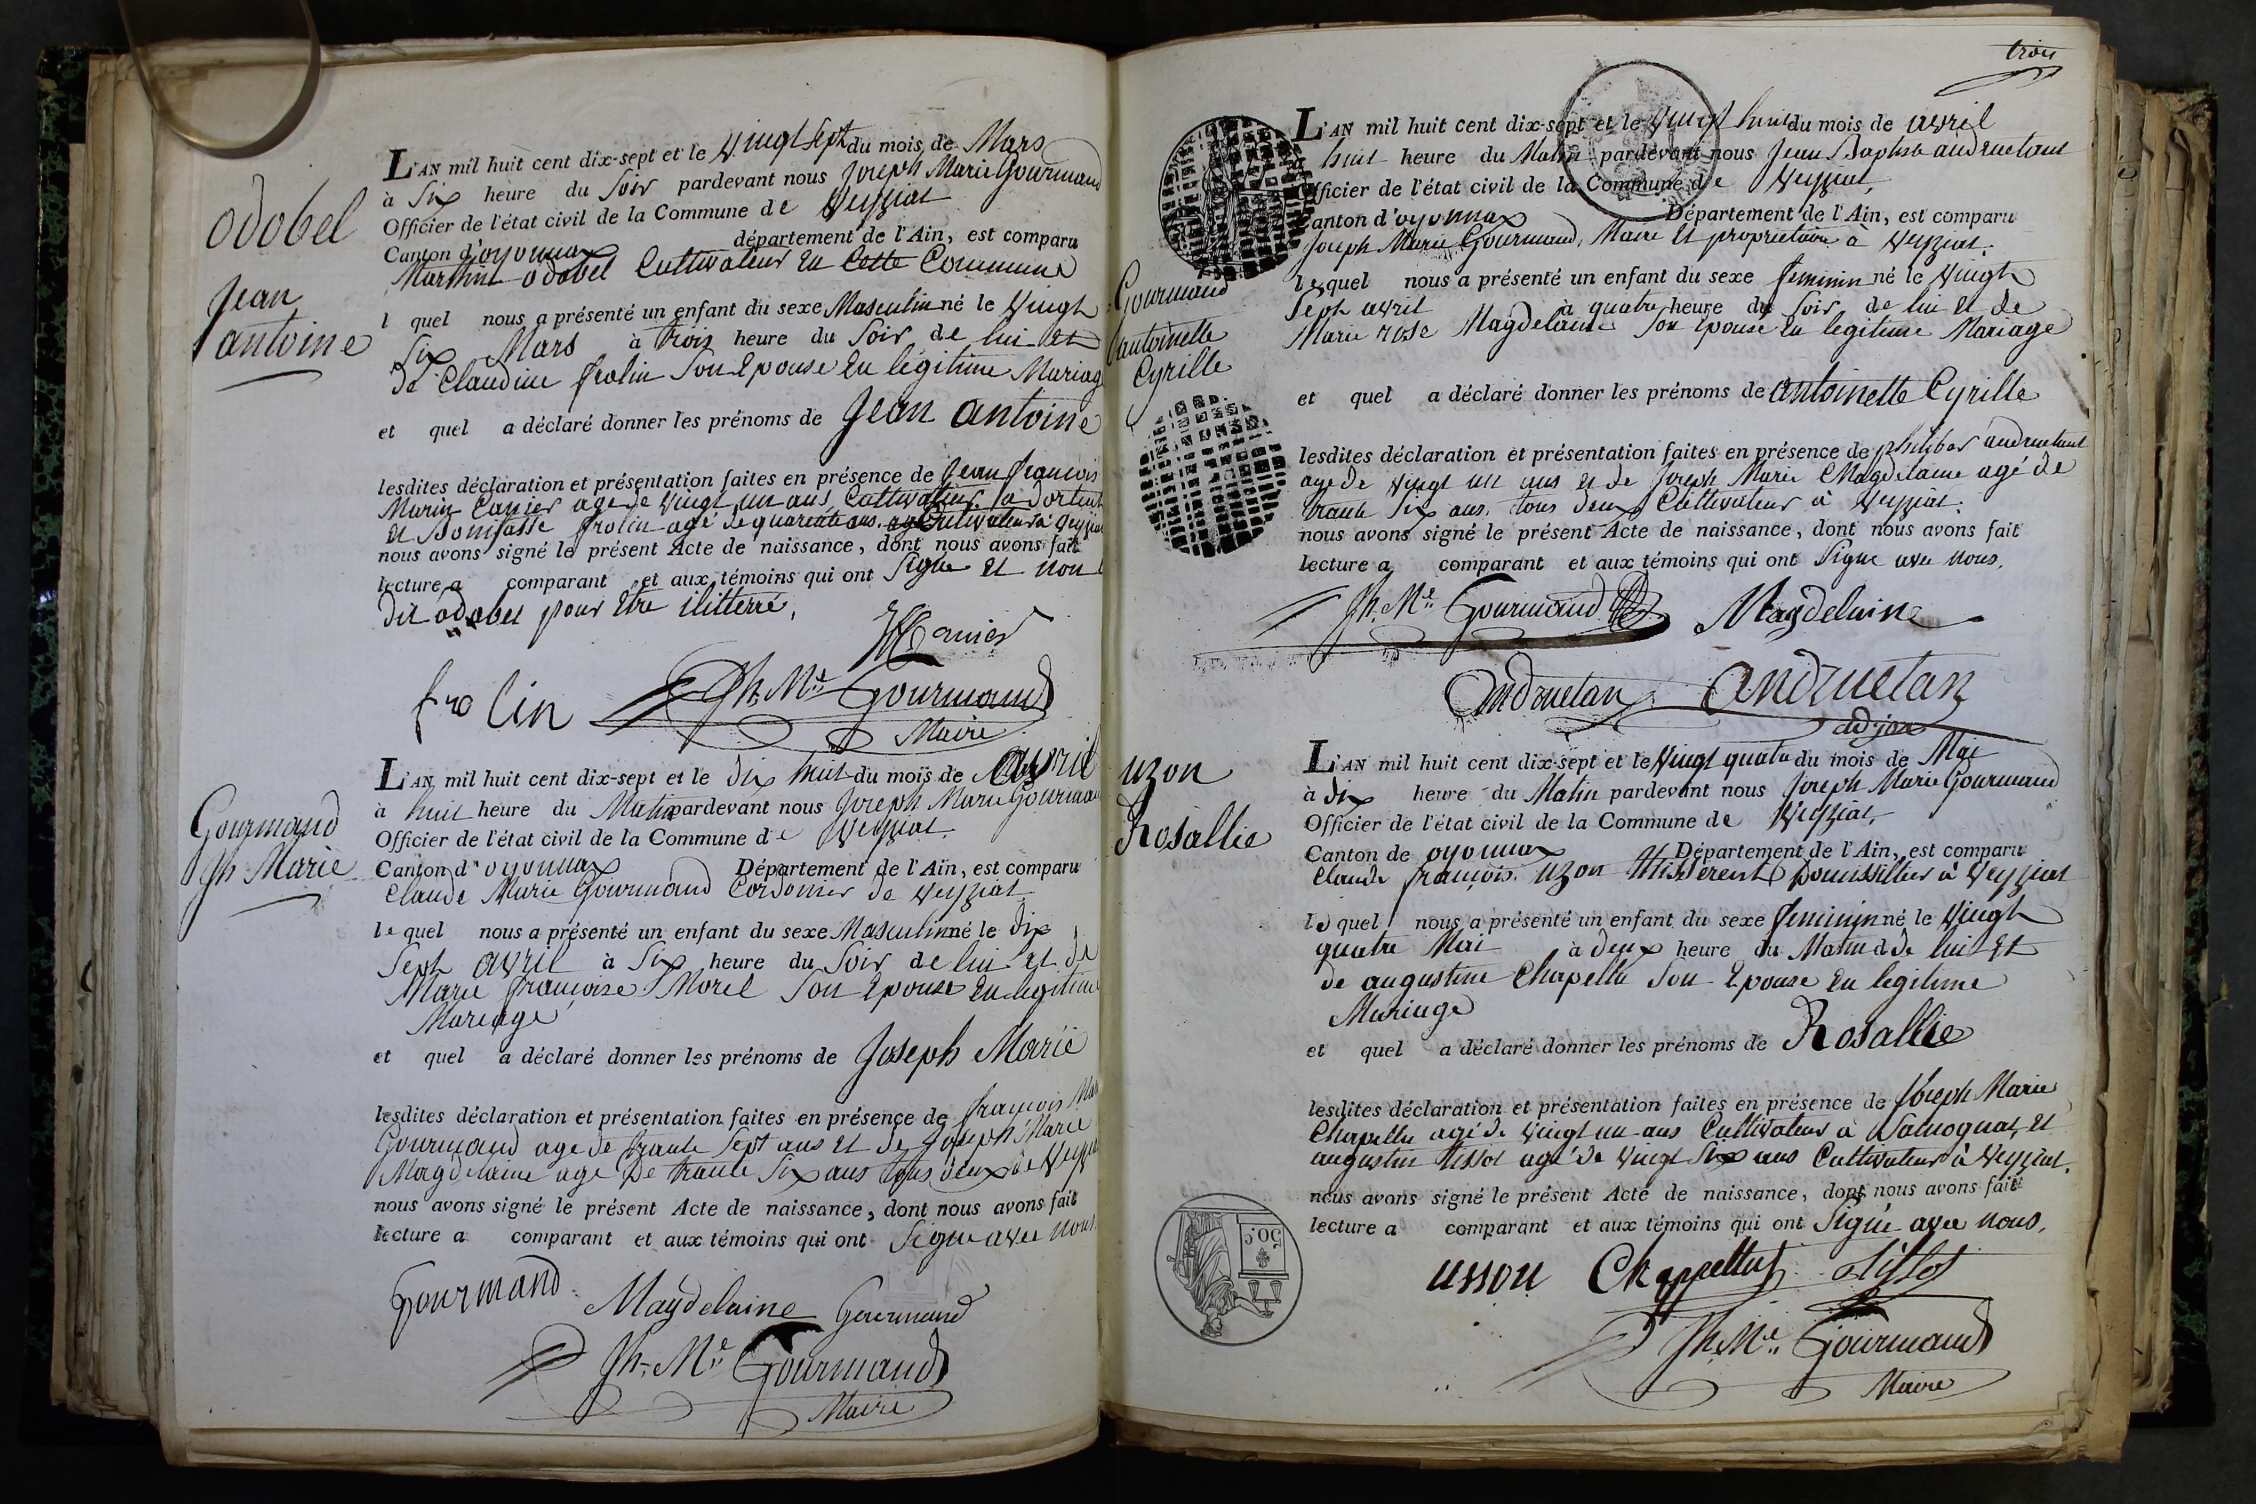 odobel
Jean
antoine
L'AN mil huit cent dix-sept et le Vingt Sept du mois de Mars
à Six heure du Soir pardevant nous Joseph Marie Gourmand
Officier de l'état civil de la Commune de Veyziat
Canton d'oyonnax département de l'Ain, est comparu
Marthin odobel Cultivateur en Cette Commune
l quel nous a présenté un enfant du sexe Masculin né le Vingt
Six Mars à trois heure du Soir de lui et
de Claudine frolin Son Epouse En légitime Mariage
et quel a déclaré donner les prénoms de Jean antoine
lesdites déclaration et présentation faites en présence de Jean francois
Marin Canier age de Vingt un ans Cultivateur a dortent
et Bonifasse frolin agé de quarente ans Cultivateur à Veyziat
nous avons signé le présent Acte de naissance, dont nous avons fait
lecture a comparant et aux témoins qui ont Signe et non
dit odobel pour être ilitterré,
Canier
frolin Jh. Mie Gourmand
Maire
Gourmand
Jh Marie
L'AN mil huit cent dix-sept et le dix huit du mois de Avril
à huit heure du Matin pardevant nous Joseph Marie Gourmand
Officier de l'état civil de la Commune de Veyziat.
Canton d'oyonnax Département de l'Ain, est comparu
Claude Marie Gourmand Cordonier de Veyziat
le quel nous a présenté un enfant du sexe Masculin né le dix
Sept avril à Six heure du Soir de lui et de
Marie françoise Morel Son Epouse En legitime
Mariage
et quel a déclaré donner les prénoms de Joseph Marie
lesdites déclaration et présentation faites en présence de françois Marie
Gourmand age de trante Sept ans et de Joseph Marie
Magdelaine age De trante Six ans tous deux de Veyziat
nous avons signé le présent Acte de naissance, dont nous avons fait
lecture a comparant et aux témoins qui ont Signe avec nous.
Gourmand Magdelaine Gourmand
Jh. Mie Gourmand
Maire
trois
Gourmand
antoinette
Cyrille
L'AN mil huit cent dix-sept et le Vingt huit du mois de avril
à huit heure du Matin pardevant nous Jean Baptiste andruetant
Officier de l'état civil de la Commune de Veyziat,
Canton d'oyonnax Département de l'Ain, est comparu
Joseph Marie Gourmand, Maire et proprietaire à Veyziat.
le quel nous a présenté un enfant du sexe feminin né le Vingt
Sept avril à quatre heure du Soir de lui et de
Marie rose Magdelaine Son Epouse En legitime Mariage
et quel a déclaré donner les prénoms de antoinette Cyrille
lesdites déclaration et présentation faites en présence de philiber andruetant
age de Vingt un ans et de Joseph Marie Magdelaine agé de
trante Six ans, tous deux Cultivateur à Veyziat.
nous avons signé le présent Acte de naissance, dont nous avons fait
lecture a comparant et aux témoins qui ont Signe avec nous.
Jh. Mie Gourmand Magdelaine
andruetan andruetan
adjoin
uzon
Rosallie
L'AN mil huit cent dix-sept et le Vingt quatre du mois de Mai
à dix heure du Matin pardevant nous Joseph Marie Gourmand
Officier de l'état civil de la Commune de Veyziat,
Canton de oyonnax Département de l'Ain, est comparu
Claude françois uzon Tisserent à Veyziat
le quel nous a présenté un enfant du sexe feminin né le Vingt
quatre Mai à deux heure du Matin d de lui et
de augustine Chapellu Son Epouse En legitime
Mariage
et quel a déclaré donner les prénoms de Rosallie
lesdites déclaration et présentation faites en présence de Joseph Marie
Chapellu agé de Vingt un ans Cultivateur à et
augustin tissot agé de Vingt Six ans Cultivateur à Veyziat.
nous avons signé le présent Acte de naissance, dont nous avons fait
lecture a comparant et aux témoins qui ont Signé avec nous.
50c.
usson Chappellus tissot
Jh. Mie Gourmand
Maire